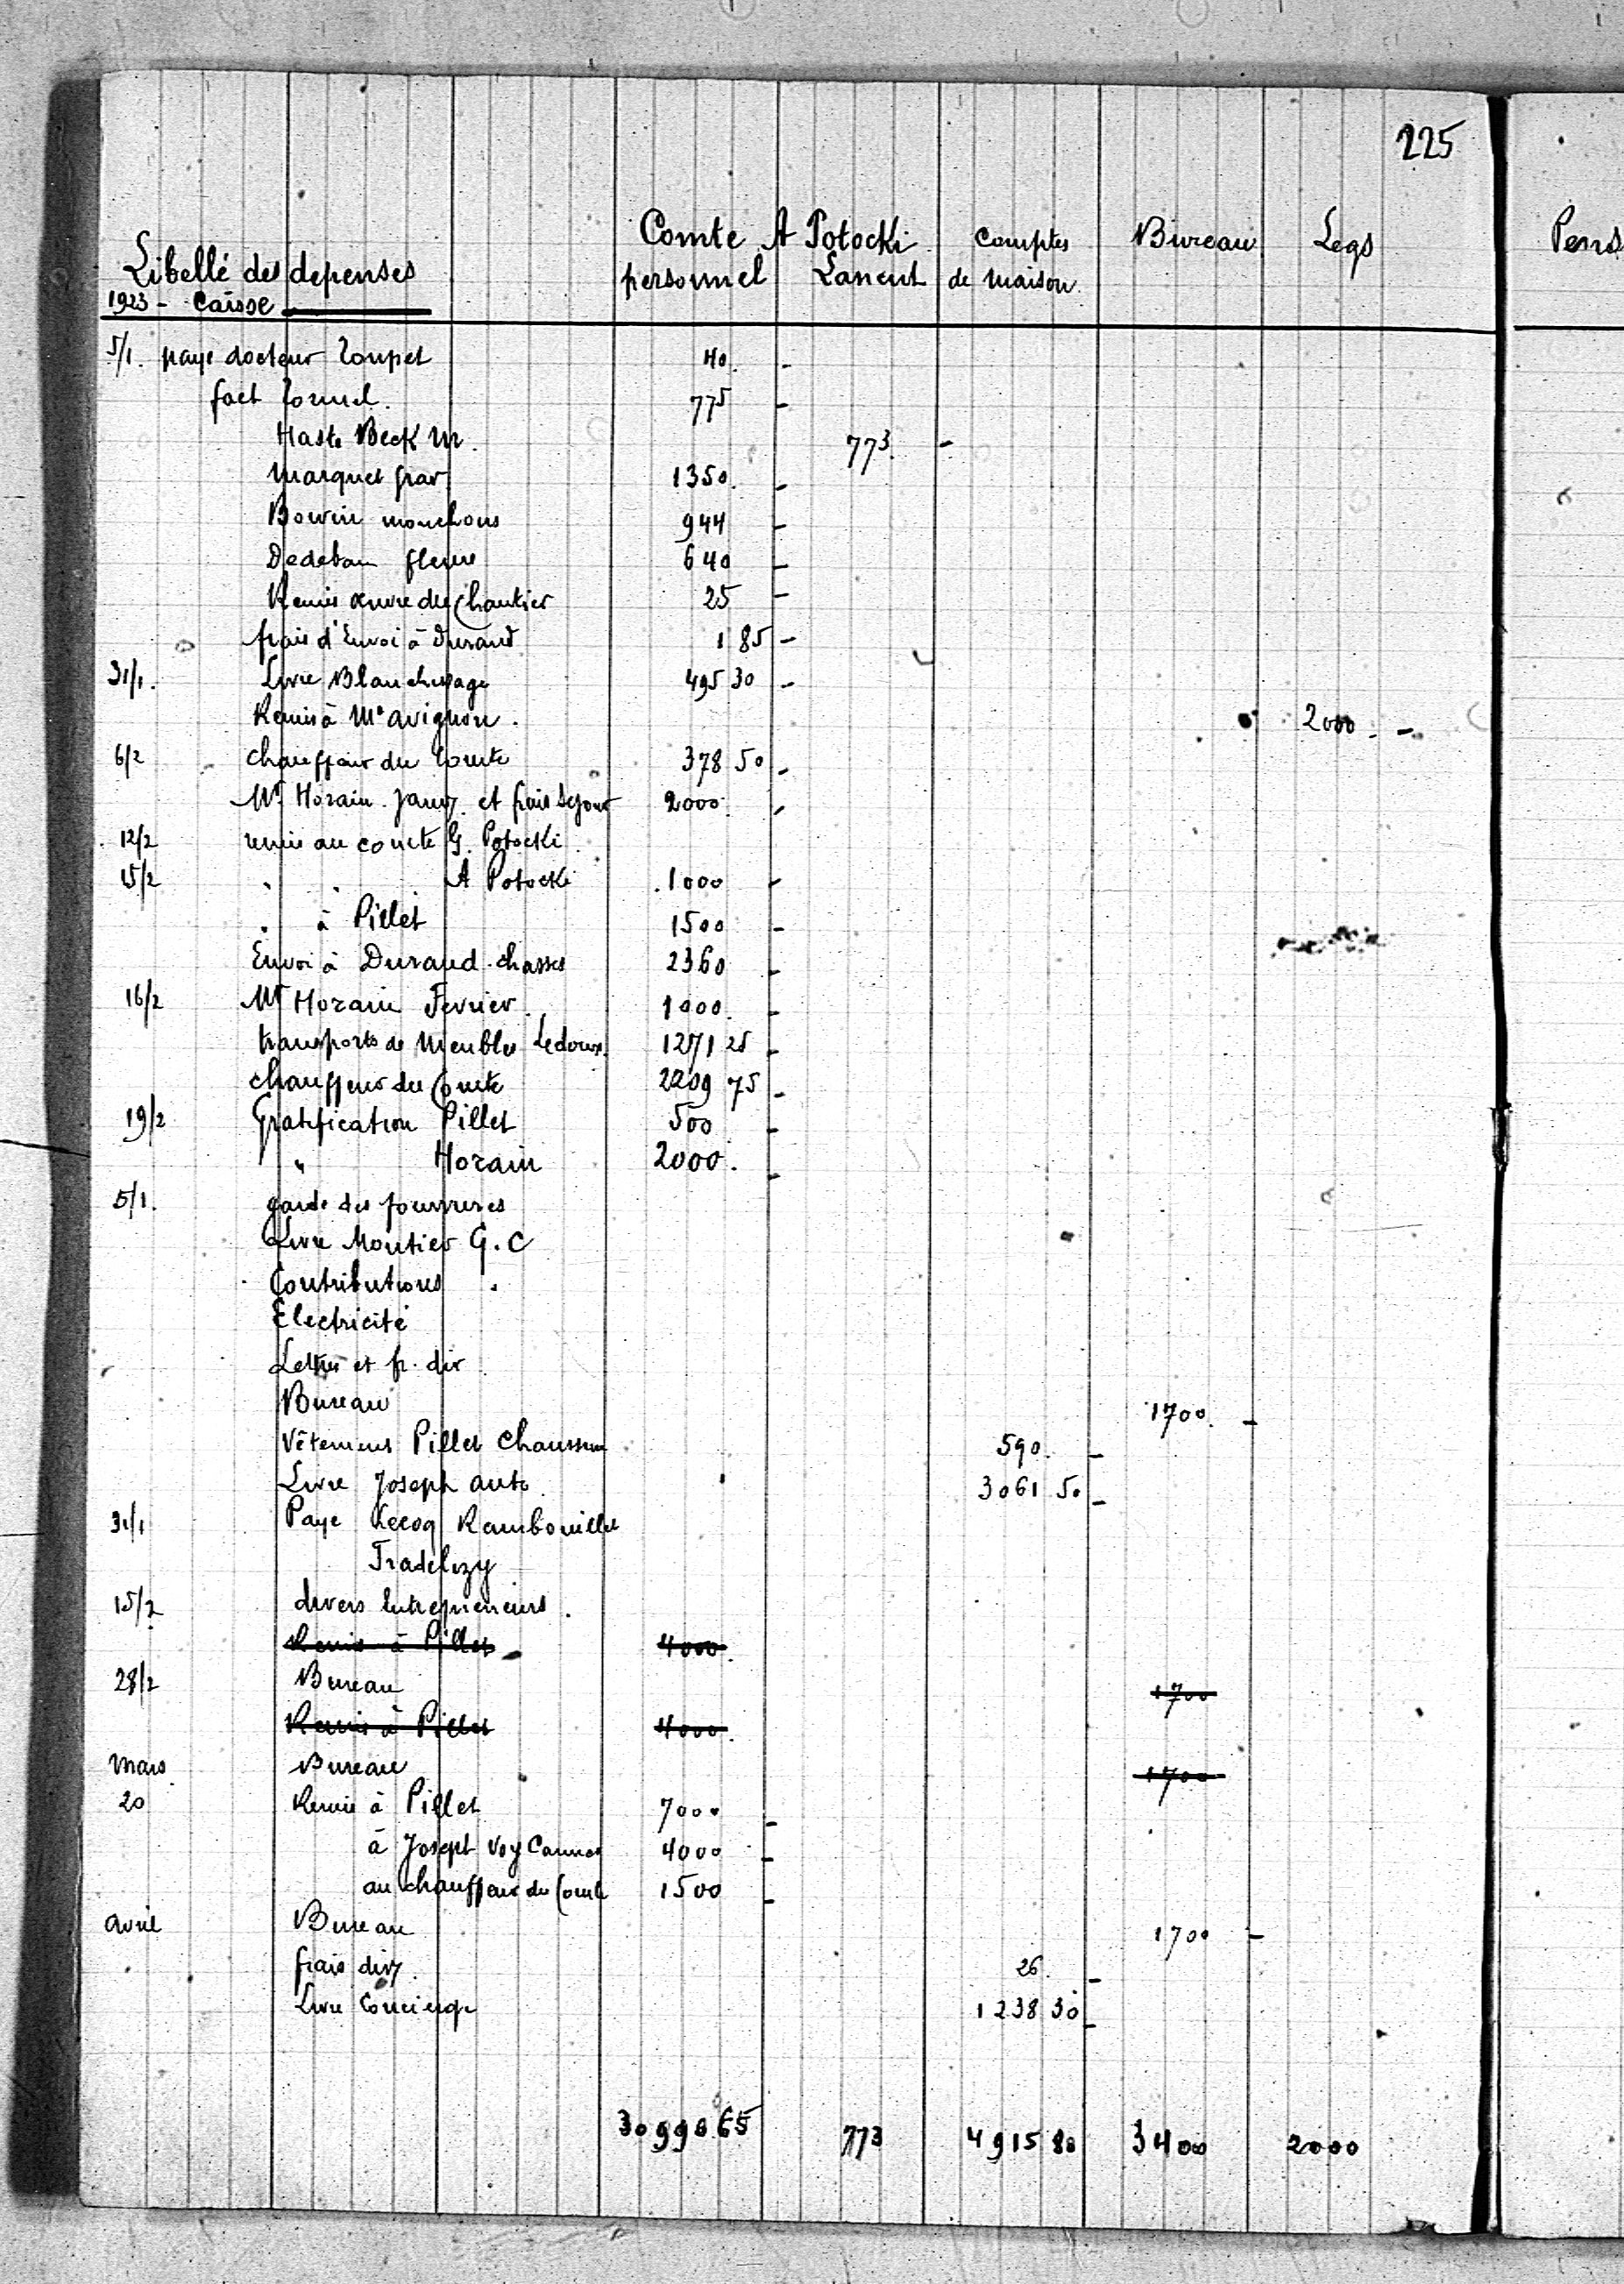 225
Comte A Potocki comptes Bureau Legs Pens
Libellé des depenses personnel Lancut de maison
1923 - Caisse
5/1. payé docteur Toupet 40. -
fact 775 -
Haste Beck M. 773. -
Marquet grav 1350. -
Bowin mouchons 944 -
Dedeban fleurs 640 -
Remis œuvre du Chantier 25 -
frais d'Envoi à Durand 1 85 -
31/1. Livre Blanchissage 495 30 -
Remis à Me avignon. 2000. -
6/2 chauffeur du Comte 378 50 -
Mr Horain. Janv. et frais Sejour 2000. -
12/2 remis au comte G. Potocki.
15/2 " " A Potocki 1000 -
" à Pillet 1500 -
Envoi à Durand. chasses 2360 -
16/2 Mr Horain Fevrier. 1000. -
transports de Meubles Ledoux. 1271 25 -
chauffeur du Comte 2209 75 -
19/2 Gratification Pillet 500 -
" Horain 2000. -
5/1. garde des fourrures
Livre Moutier G.C
Contributions .
Electricité
Lettres et fr. div.
Bureau 1700. -
Vêtements Pillet Chaussures 590. -
Livre Joseph auto. 3061 50 -
31/1 Payé Lecoq Rambouillet
Tradelizy
15/2 divers Entrepreneurs.
Remis à Pillet - 4000.
28/2 Bureau 1700
Remis à Pillet 4000.
Mars Bureau 1700
20 Remis à Pillet 7000 -
à Joseph Voy Cannes 4000 -
au chauffeur du Comte 1500 -
avril Bureau 1700 -
frais div. 26. -
Livre Concierge 1238 30 -
30990 65 773 4915 80 3400 2000